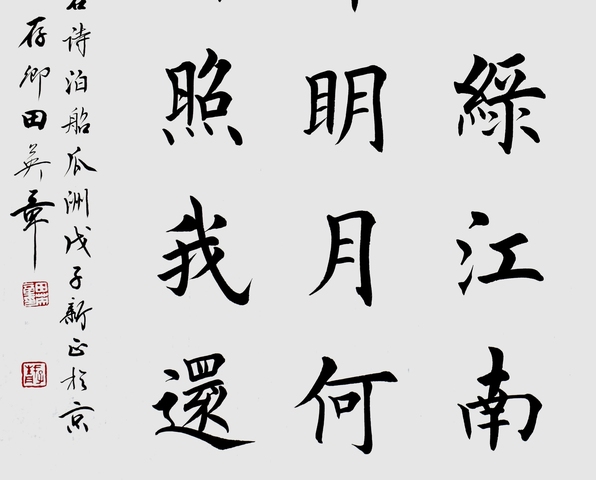 綠江南
明月何
照我還
石詩泊船瓜洲戊子新正於京
存卿田英章